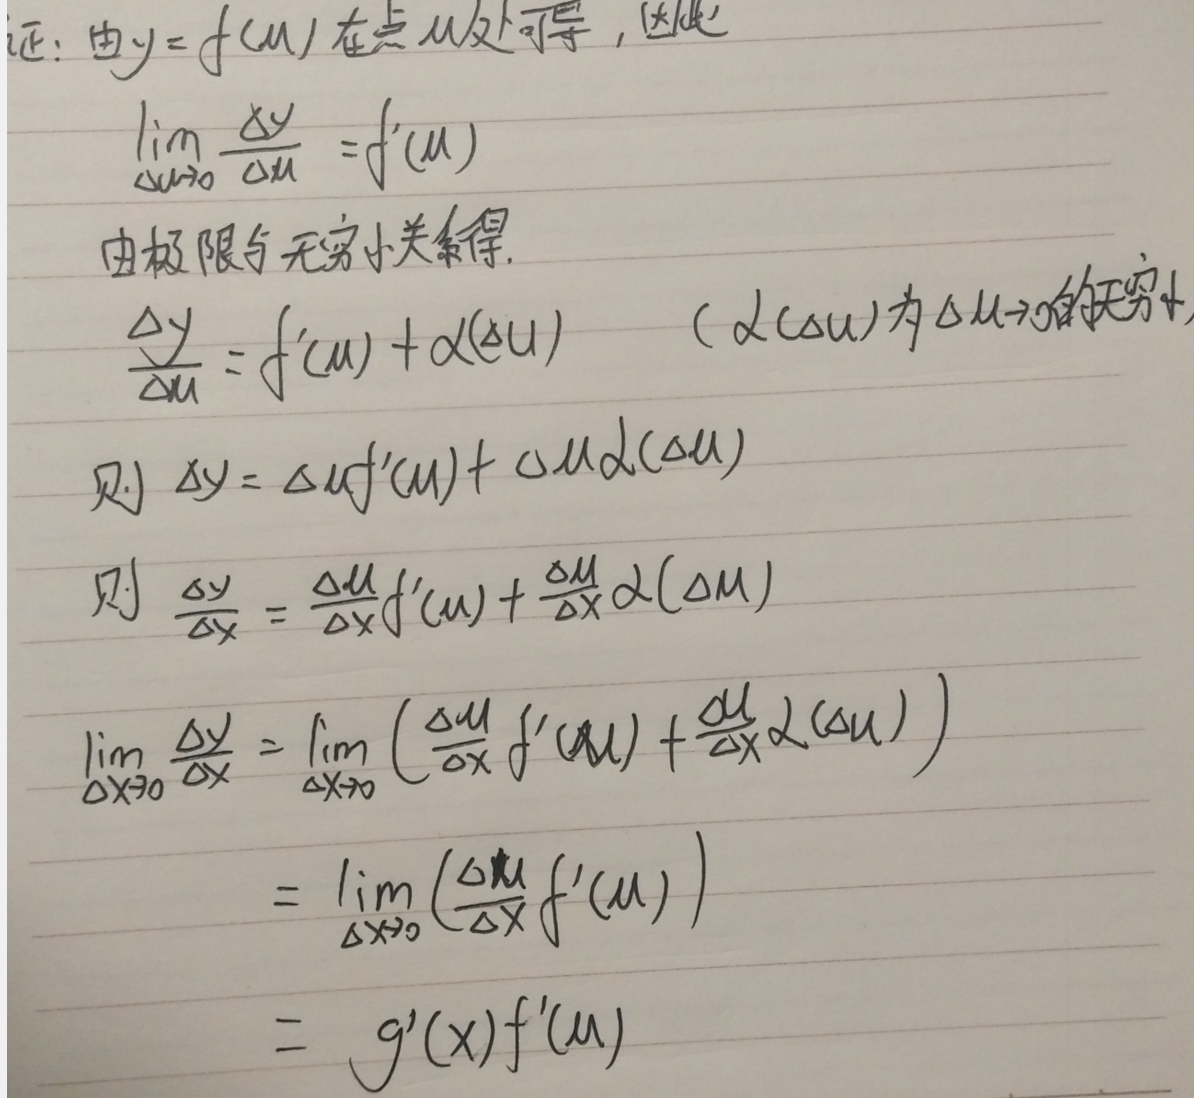 证：由y=f(u)在点u处可导，因此
lim Δu→0 Δy/Δu = f'(u)
由极限与无穷小关系得.
Δy/Δu = f'(u) + α(Δu) (α(Δu)为Δu→0的无穷小)
则 Δy = Δuf'(u) + Δuα(Δu)
则 Δy/Δx = Δu/Δx f'(u) + Δu/Δx α(Δu)
lim Δx→0 Δy/Δx = lim Δx→0 (Δu/Δx f'(u) + Δu/Δx α(Δu))
= lim Δx→0 (Δu/Δx f'(u))
= g'(x)f'(u)